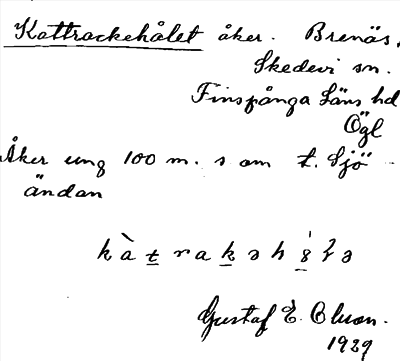 Kattrackehålet åker. Brenäs,
Skedevi sn.
Finspånga Läns hd
Ögl
Åker ung 100 m. s om t. Sjö-
ändan
Gustaf E. Olson.
1929